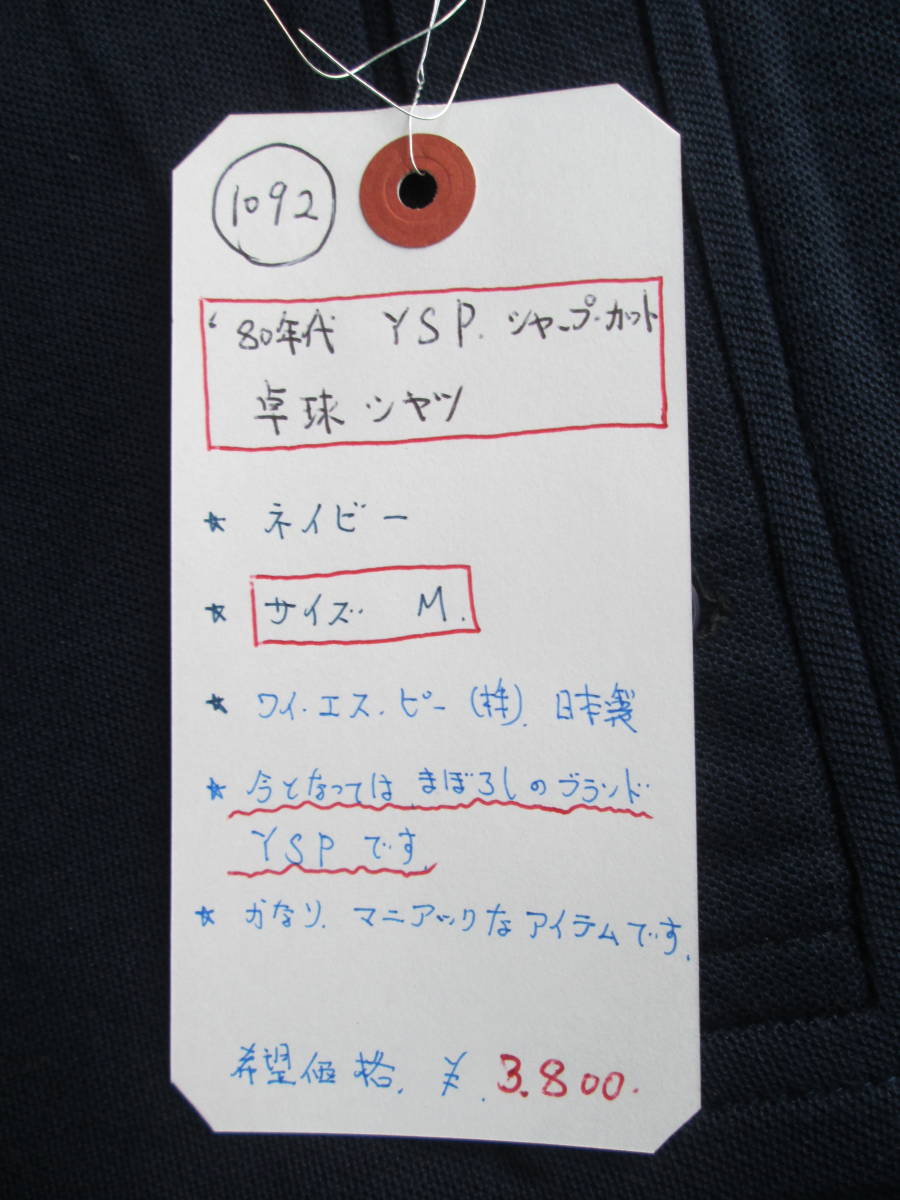 1092
'80年代 YSP. シャープ・カット
卓球シャツ
★ ネイビー
★ サイズ M.
★ ワイ・エス・ピー (株). 日本製
★ 今となっては まぼろしのブランド
YSP です
★ かなり、マニアックなアイテムです.
希望価格. ¥. 3.800.